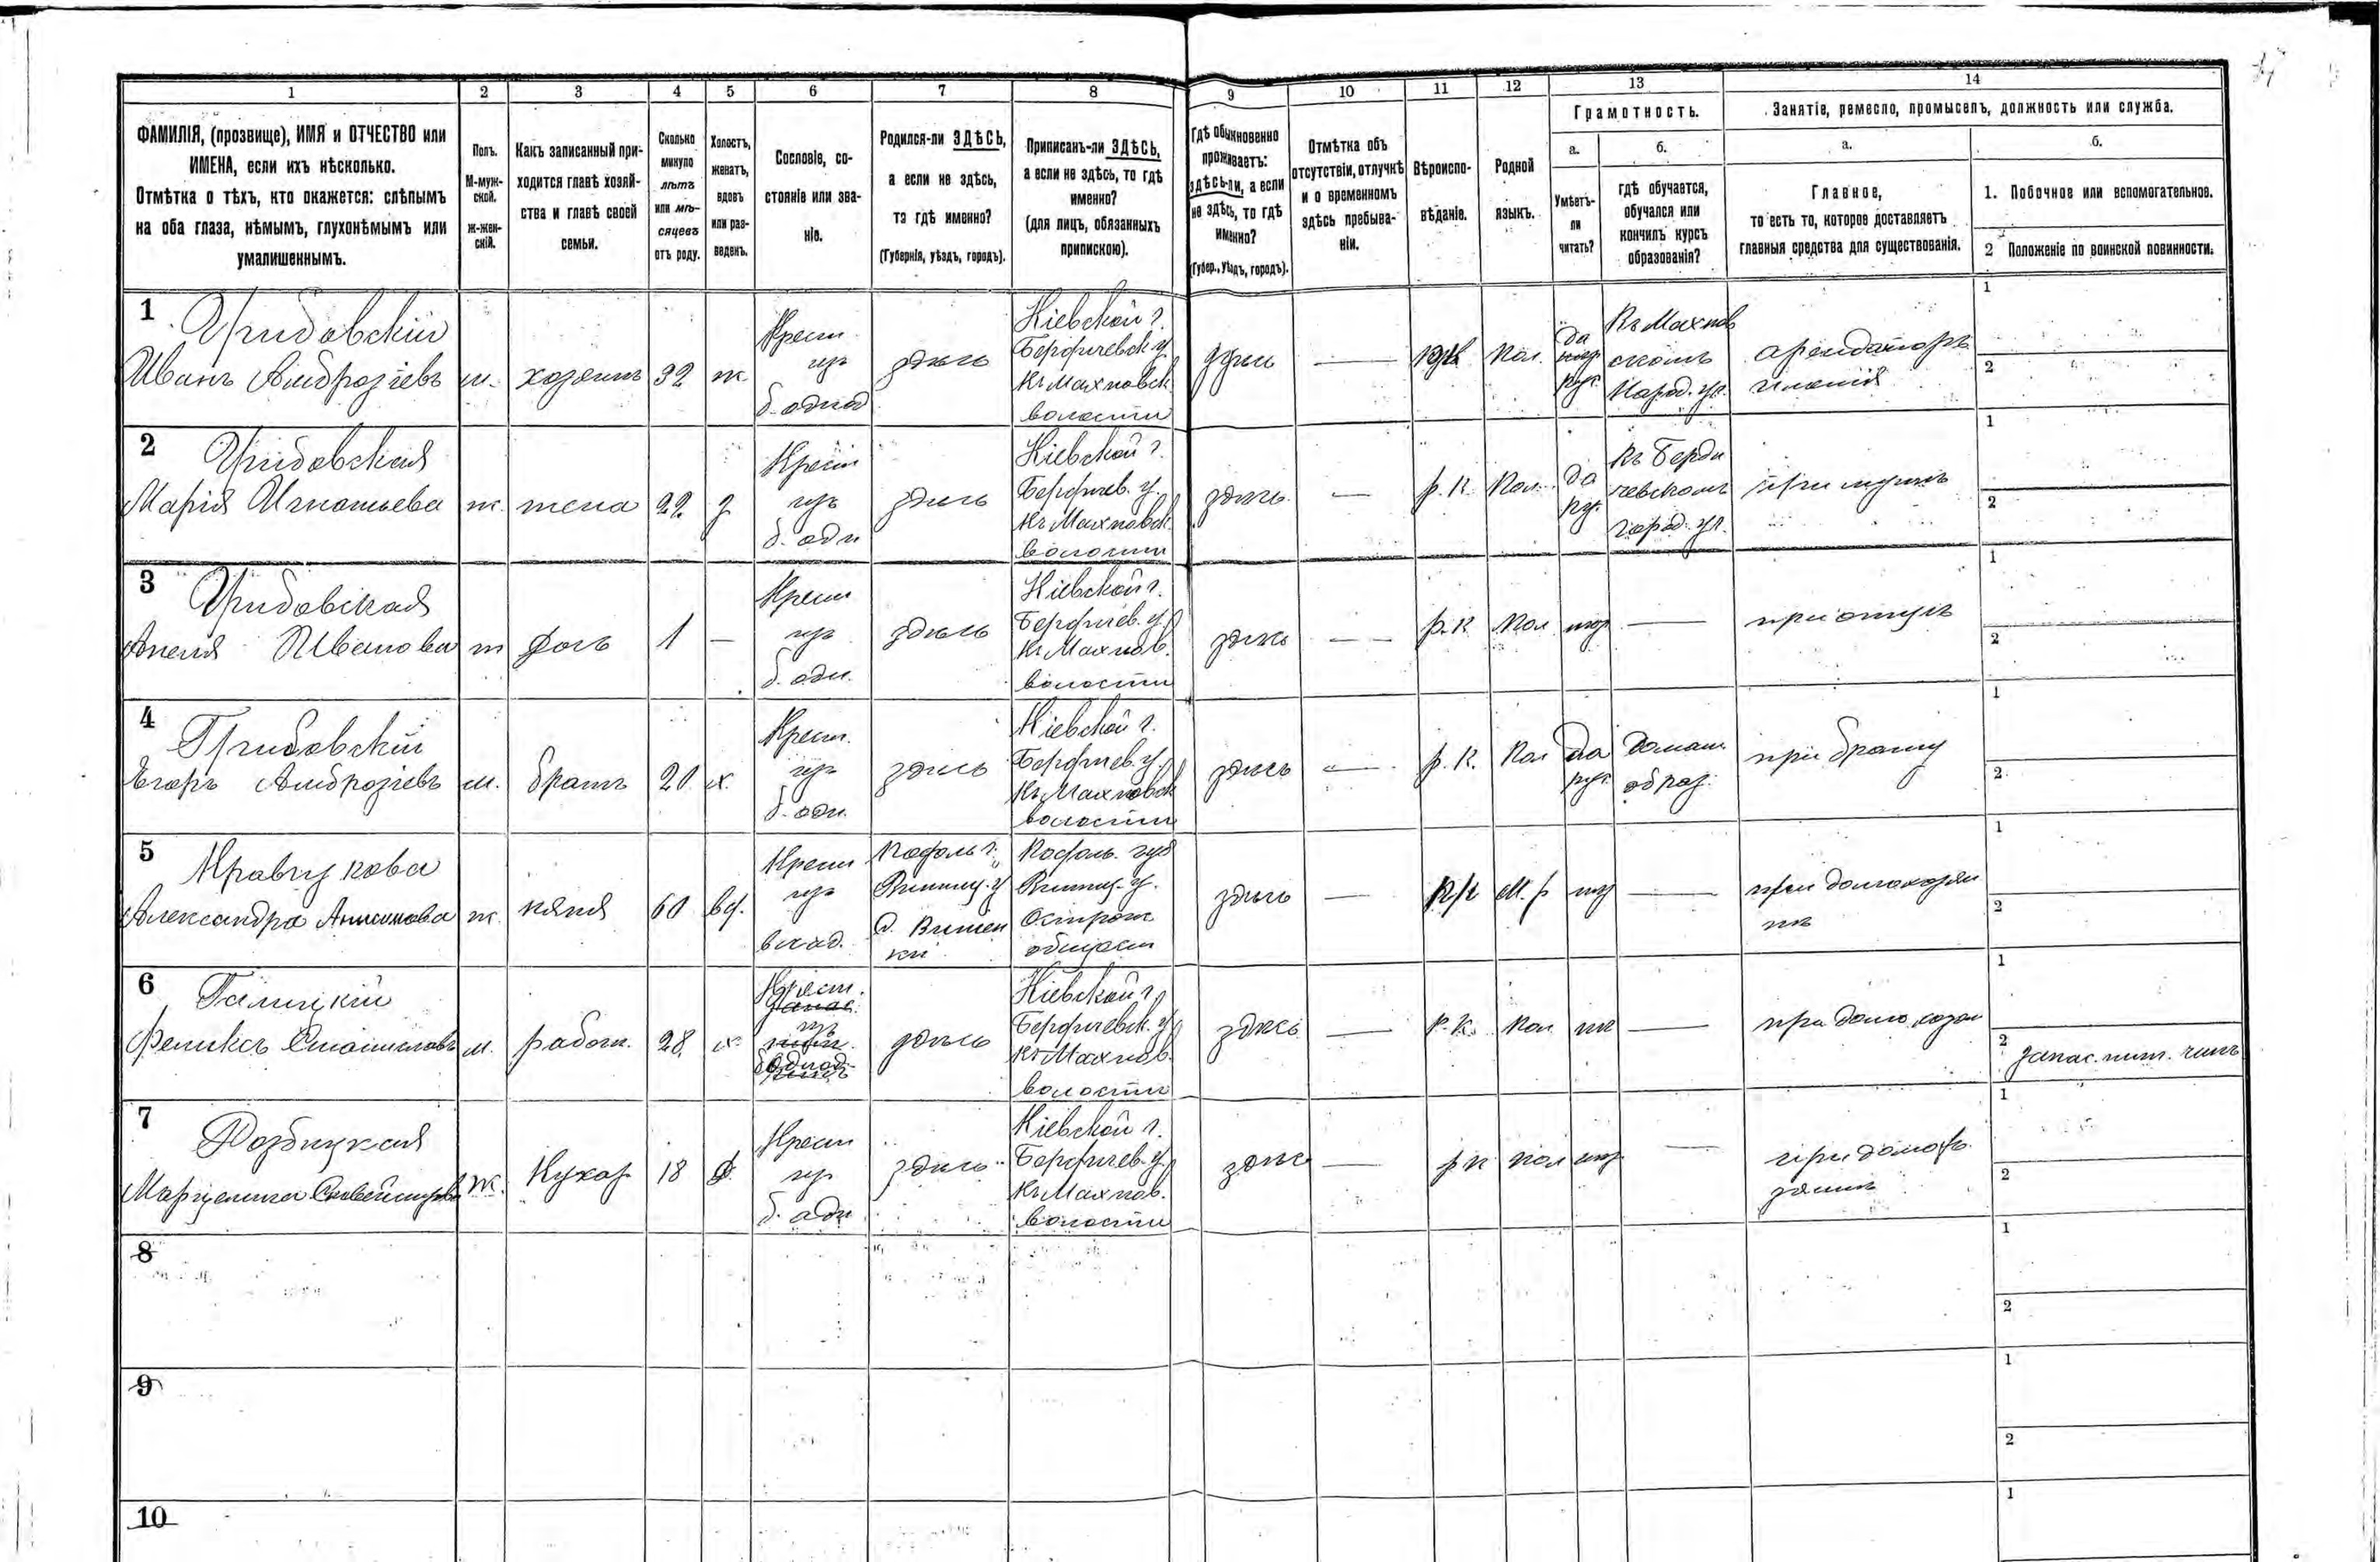 1 2 3 4 5 6 7 8 9 10 11 12 13 14
ФАМИЛІЯ, (прозвище), ИМЯ и ОТЧЕСТВО или
ИМЕНА, если ихъ нѣсколько.
Отмѣтка о тѣхъ, кто окажется: слѣпымъ
на оба глаза, нѣмымъ, глухонѣмымъ или
умалишеннымъ.
Полъ.
М-муж-
ской.
Ж-жен-
скій.
Какъ записанный при-
ходится главѣ хозяй-
ства и главѣ своей
семьи.
Сколько
минуло
лѣтъ
или мѣ-
сяцевъ
отъ роду.
Холостъ,
женатъ,
вдовъ
или раз-
веденъ.
Сословіе, со-
стояніе или зва-
ніе.
Родился-ли ЗДѢСЬ,
а если не здѣсь,
то гдѣ именно?
(Губернія, уѣздъ, городъ).
Приписанъ-ли ЗДѢСЬ,
а если не здѣсь, то гдѣ
именно?
(для лицъ, обязанныхъ
припискою).
Гдѣ обыкновенно
проживаетъ:
здѣсь-ли, а если
не здѣсь, то гдѣ
именно?
(Губер., уѣздъ, городъ).
Отмѣтка объ
отсутствіи, отлучкѣ
и о временномъ
здѣсь пребыва-
ніи.
Вѣроиспо-
вѣданіе.
Родной
языкъ.
Грамотность.
а.
Умѣетъ-
ли
читать?
б.
гдѣ обучается,
обучался или
кончилъ курсъ
образованія?
Занятіе, ремесло, промыселъ, должность или служба.
а.
Главное,
то есть то, которое доставляетъ
главныя средства для существованія.
б.
1. Побочное или вспомогательное.
2 Положеніе по воинской повинности.
1
Грибовскій
Иванъ Амброзіевъ
м.
хозяинъ
32
ж
Крест
изъ
б. однод
здѣсь
Кіевской г.
Бердичевск. у.
Къ Махновск.
волости
здѣсь
—
р.к.
Пол.
да
рус.
Въ Махнов
скомъ
Народ. уч.
арендаторъ
имѣнія
1
2
2
Грибовская
Марія Игнатьева
ж.
жена
22
з
Крест
изъ
б. одн
здѣсь
Кіевской г.
Бердичев. у.
Къ Махновск.
волости
здѣсь
—
р. К.
Пол.
да
рус.
Въ Берди
чевскомъ
город. уч.
при мужѣ
1
2
3
Грибовская
Анеля Иванова
ж
дочь
1
—
Крест
изъ
б. одн.
здѣсь
Кіевской г.
Бердичев. у.
Къ Махнов.
волости
здѣсь
—
р. К.
Пол
—
при отцѣ
1
2
4
Грибовскій
Егоръ Амброзіевъ
м.
братъ
20
х.
Крест.
изъ
б. одн.
здѣсь
Кіевской г.
Бердичев. у.
Къ Махновск
волости
здѣсь
—
р. К.
Пол
да
рус.
домаш.
образ.
при брату
1
2
5
Кравчукова
Александра Анисимова
ж.
няня
60
вд.
Крест
изъ
влад.
Подоль г.
Винниц. у
Подоль. губ
Винниц. у.
общест
здѣсь
—
М. р
—
при домохозяи
нѣ
1
2
6
Галицкій
Феликсъ Станиславъ
м.
работн.
28
х.
Крест.
изъ
б однод
здѣсь
Кіевской г.
Бердичевск. у
Къ Махнов.
волости
здѣсь
—
р. к.
Пол
—
при домохозяи
1
2
запас. ниж. чинъ
7
Ж.
Кухар
18
д.
Крест
изъ
б. одн
здѣсь
Кіевской г.
Бердичев. у
Къ Махнов.
волости
здѣсь
—
р к
пол
—
при домохо
зяинѣ
1
2
8
1
2
9
1
2
10
1